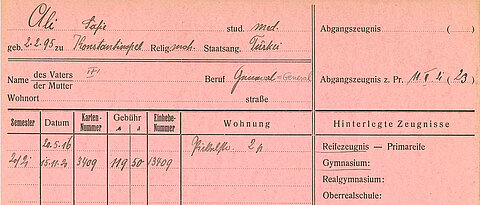 Ali Safie stud. med.
geb. 2.2.95 zu Konstantinopel Relig. moh. Staatsang. Türkei
Name des Vaters
der Mutter
Beruf General = General
Wohnort straße
Semester Datum Karten-Nummer Gebühr Einhebe-Nummer Wohnung
20.5.16
15.11.20 3409 119 50 13409 2 p
Abgangszeugnis ( )
Abgangszeugnis z. Pr. (23)
Hinterlegte Zeugnisse
Reifezeugnis – Primareife
Gymnasium:
Realgymnasium:
Oberrealschule: